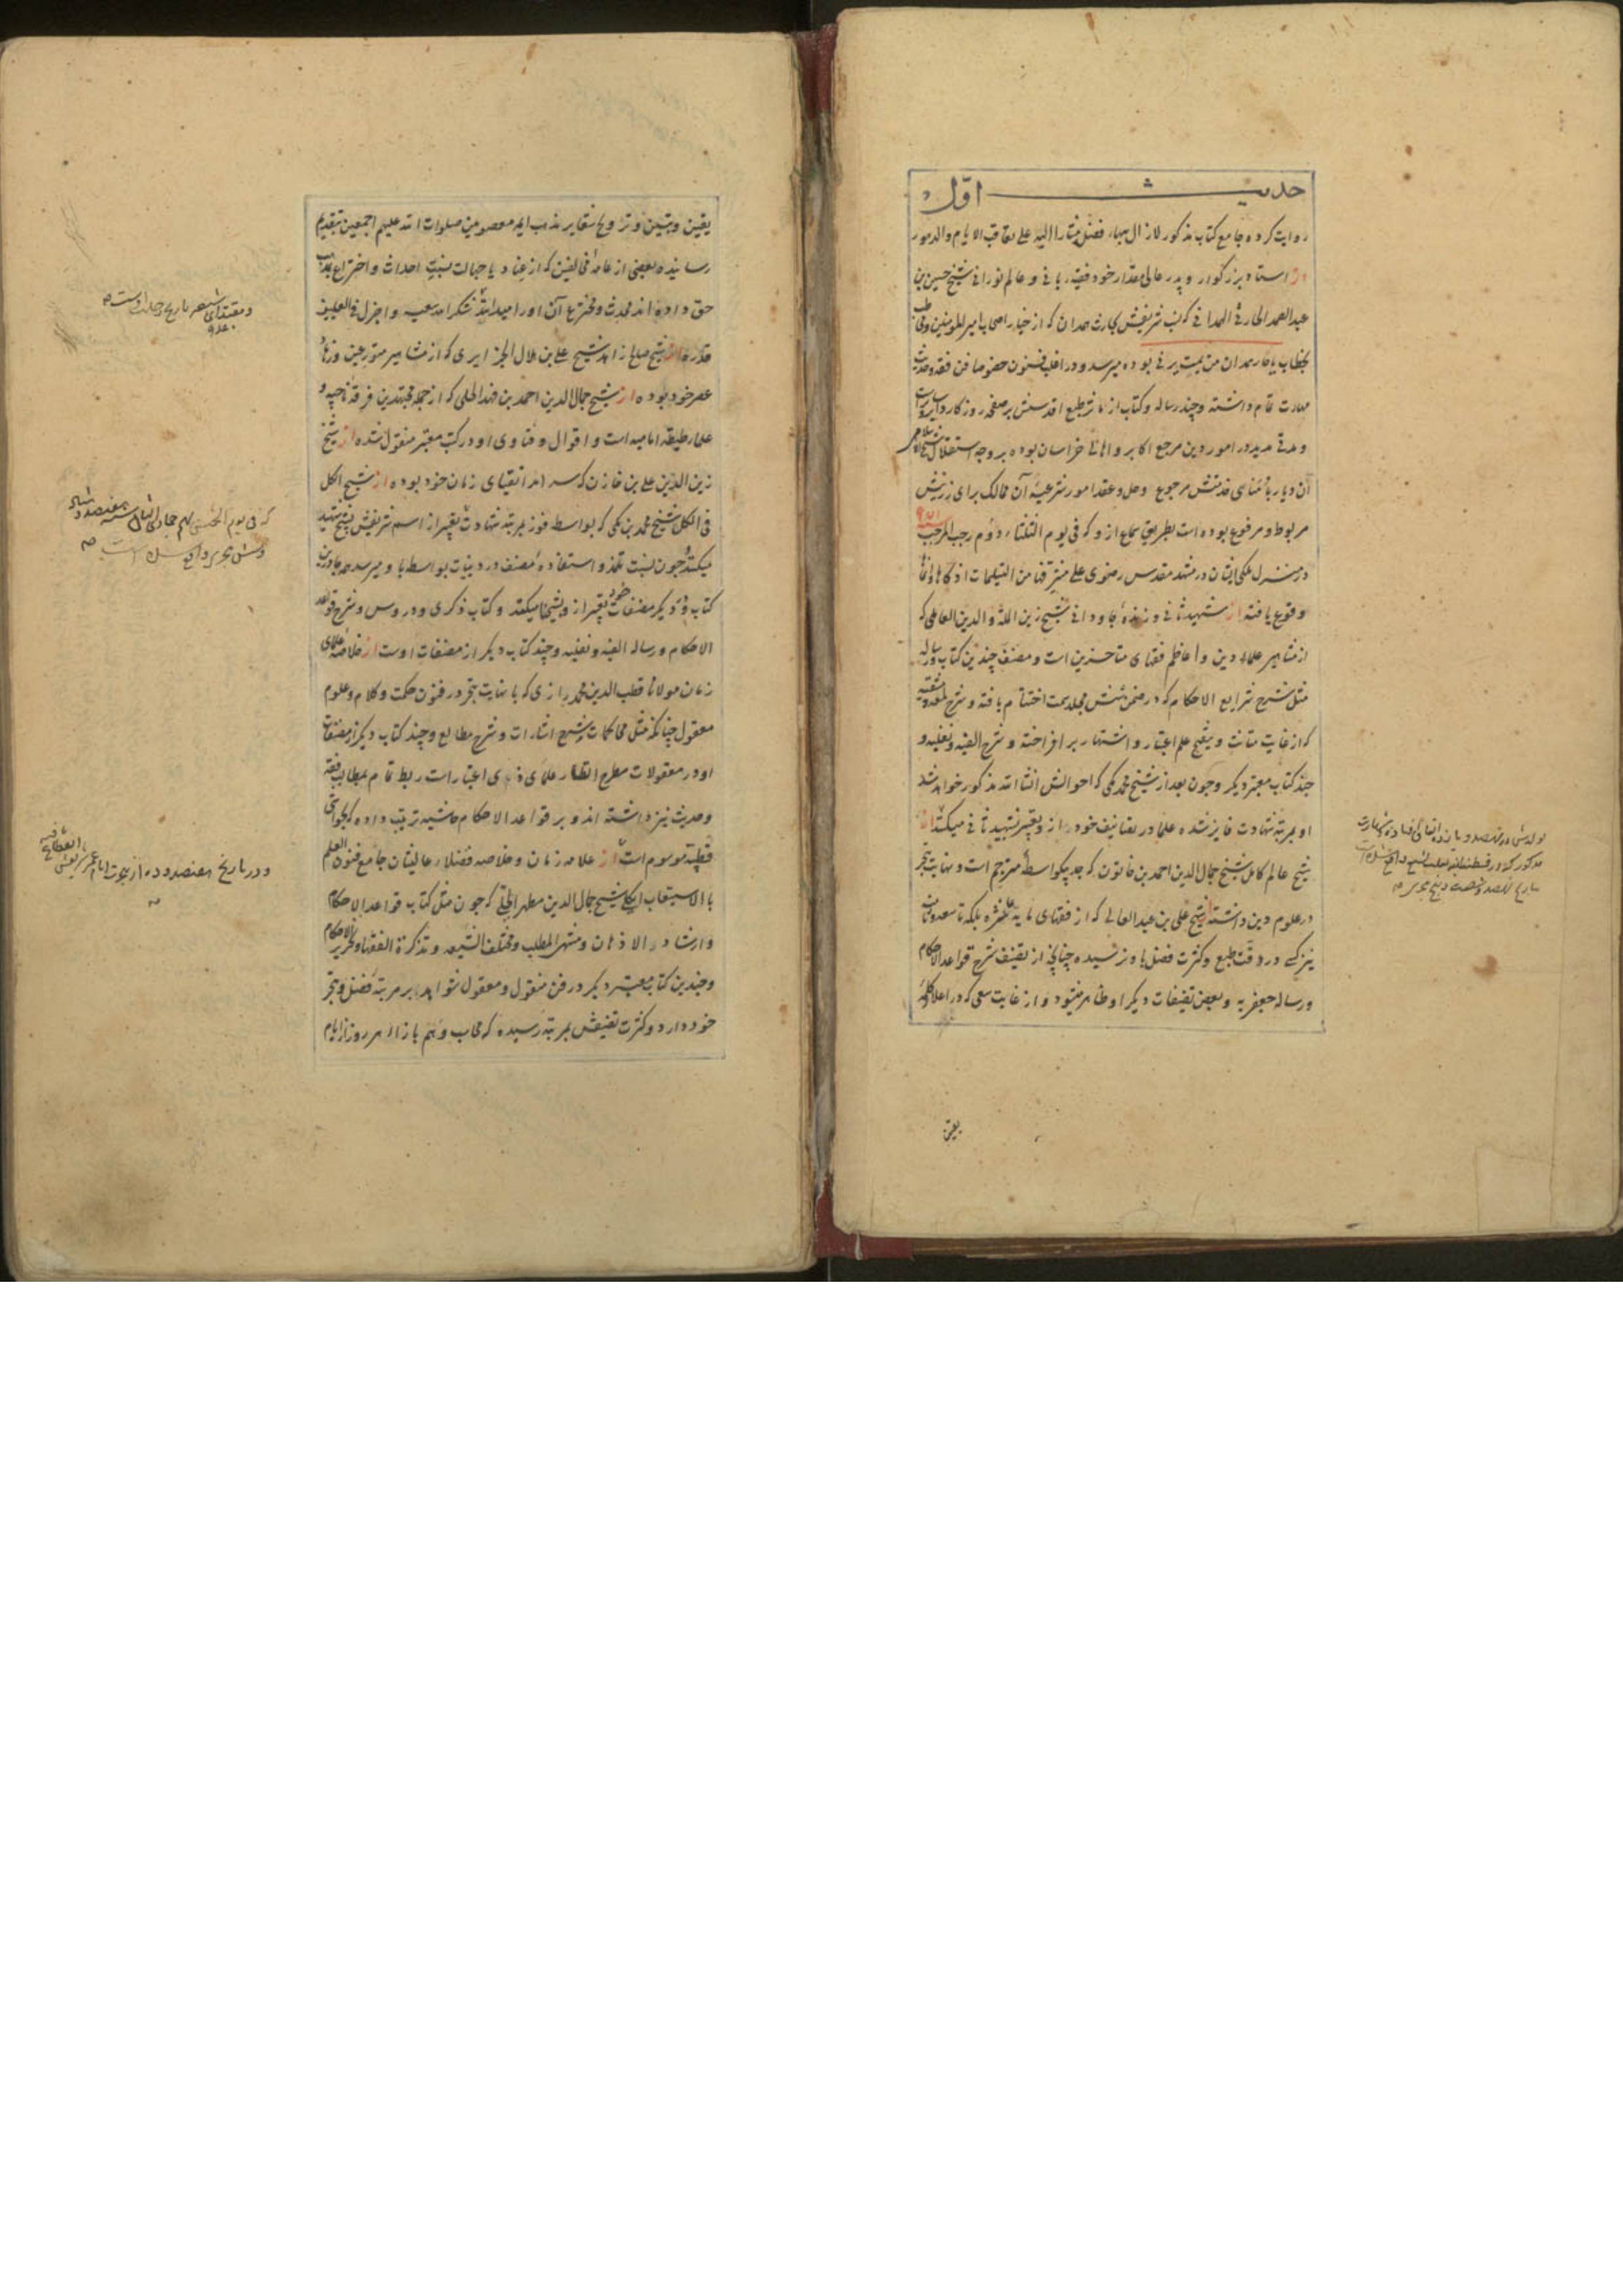 حدیث اوّل
روایت کرده جامع کتاب مذکور لازال بهاء فضل مشارا الیه علی تعاقب الایام والدهور
از استاد بزرکوار و پدر عالیمقدار خود فقیه ربانی و عالم نورانی شیخ حسین بن
عبدالصمد الحارثی الهمدانی که نسب شریفش بحارث همدان که از خیار اصحاب امیرالمومنین وفی
بخطاب یا حار همدان من یمت یرنی بوده میرسد و در اغلب فنون خصوصا فن فقه و حدیث
مهارت تمام داشته و چند رساله و کتاب از ماثر طبع اقدسش بر صفحه روزکار دایر و سایر است
و مدتی مدید در امور دین مرجع اکابر و اهالی خراسان بوده بروجه استقلال
آن دیار بامنای خدمتش مرجوع و حل و عقد امور شرعیهٔ آن ممالک برای رزینش
مربوط و مرفوع بوده است بطریق سماع ازو که فی یوم الثلثاء دوم رجب المرجب ۹۷۱
در منزل ملکی ایشان در مشهد مقدس رضوی علی مشرفها من التسلیمات ازکاها و انماها
وقوع یافته از شهید ثانی و زندهٔ جاودانی شیخ زین المله والدین العاملی که
از مشاهیر علماء دین و اعاظم فقهای متاخرین است و مصنف چندین کتاب و رساله
مثل شرح شرایع الاحکام که در ضمن شش مجلد سمت اختتام یافته و شرح لمعه دمشقیه
که از غایت متانت و تنقیح علم اعتبار و اشتهار برافراخته و شرح الفیه و نفلیه و
چند کتاب معتبر دیکر و چون بعد از شیخ محمد مکی که احوالش انشاالله مذکور خواهد شد
او بمرتبه شهادت فایز شده علما در تصانیف خود از و بتعبیر شهید ثانی میکنند از
شیخ عالم کامل شیخ جمال الدین احمد بن خاتون که جد بیکواسطهٔ مترجم است و نهایت تبحر
در علوم دین داشته از شیخ علی بن عبدالعالی که از فقهای مایه عاشره بلکه تاسعه و ثامنه
نیز کسی در دقت طبع و کثرت فضل باو نرسیده چنانچه از تصنیف شرح قواعد الاحکام
و رساله جعفریه و بعض تصنیفات دیکر او ظاهر میشود و از غایت سعی که در اعلاء کلمهٔ
یقین
تولدش در نهصد و یازده اتفاق افتاده و شهادت
مذکور که در قسطنطنیه
بتاریخ نهصد و شصت و پنج هجری
یقین و تبیین و ترویج شعایر مذهب ایمه معصومین صلوات الله علیهم اجمعین بتقدیم
رسانیده بعضی از عامه مخالفین که از عناد یا جهالت نسبت احداث و اختراع بمذهب
حق داده اند محدث و مخترع آن او را میدانند شکر الله سعیه و اجزل فی العلیین
قدره از شیخ صالح زاهد شیخ علی بن هلال الجزایری که از مشاهیر متورعین و زهاد
عصر خود بوده از شیخ جمال الدین احمد بن فهد الحلی که از جمله مجتهدین فرقهٔ ناجیه و
علماء طبقهٔ امامیه است و اقوال و فتاوی او در کتب معتبر منقول شده از شیخ
زین الدین علی بن خازن که سر آمد اتقیای زمان خود بوده از شیخ الکل
فی الکل شیخ محمد بن مکی که بواسطه فوز بمرتبهٔ شهادت تعبیر از اسم شریفش بشیخ شهید
میکنند و چون نسبت تلمذ و استفادهٔ مصنف در دینیات بواسطه باو میرسد همه جا درین
کتاب و در دیکر مصنفات خود تعبیر از و بشیخنا میکند و کتاب ذکری و دروس و شرح قواعد
الاحکام و رساله الفیه و نفلیه و چند کتاب دیکر از مصنفات اوست از علامهٔ علمای
زمان مولانا قطب الدین محمد رازی که با نهایت تبحر در فنون حکمت و کلام و علوم
معقول چنانکه مثل محاکمات و شرح اشارات و شرح مطالع و چند کتاب دیکر از مصنفات
او در معقولات مطرح انظار علمای ذوی اعتبار است ربط تمام بمطالب فقه
و حدیث نیز داشته اند و بر قواعد الاحکام حاشیه ترتیب داده که بحواشی
قطبیه موسوم است از علامه زمان و خلاصه فضلاء عالیشان جامع فنون العلم
بالاستیعاب الکلی شیخ جمال الدین مطهر الحلی که چون مثل کتاب قواعد الاحکام
و ارشاد الاذهان و منتهی المطلب و مختلف الشیعه و تذکرة الفقها و تحریر الاحکام
و چندین کتاب معتبر دیکر در فن منقول و معقول شواهد بر مرتبهٔ فضل و تبحر
خود دارد و کثرت تصنیفش بمرتبهٔ رسیده که محاسب وهم بازاء هر روز از ایام
و مقتدای شیعه تاریخ رحلت اوست
۹۴۰
که فی یوم الخمیس نهم جمادی الاول سنه هفتصد و هشتاد
و شش هجری واقع شده است
و در تاریخ هفتصد و ده از هجرت